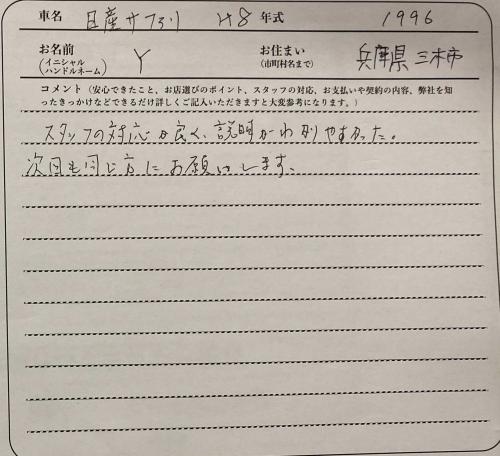 車名 日産サファリ H8 年式 1996
お名前 (イニシャル ハンドルネーム) Y お住まい (市町村名まで) 兵庫県三木市
コメント (安心できたこと、お店選びのポイント、スタッフの対応、お支払いや契約の内容、弊社を知
ったきっかけなどできるだけ詳しくご記入いただきますと大変参考になります。)
スタッフの対応が良く、説明がわかりやすかった。
次回も同じ方にお願いします。